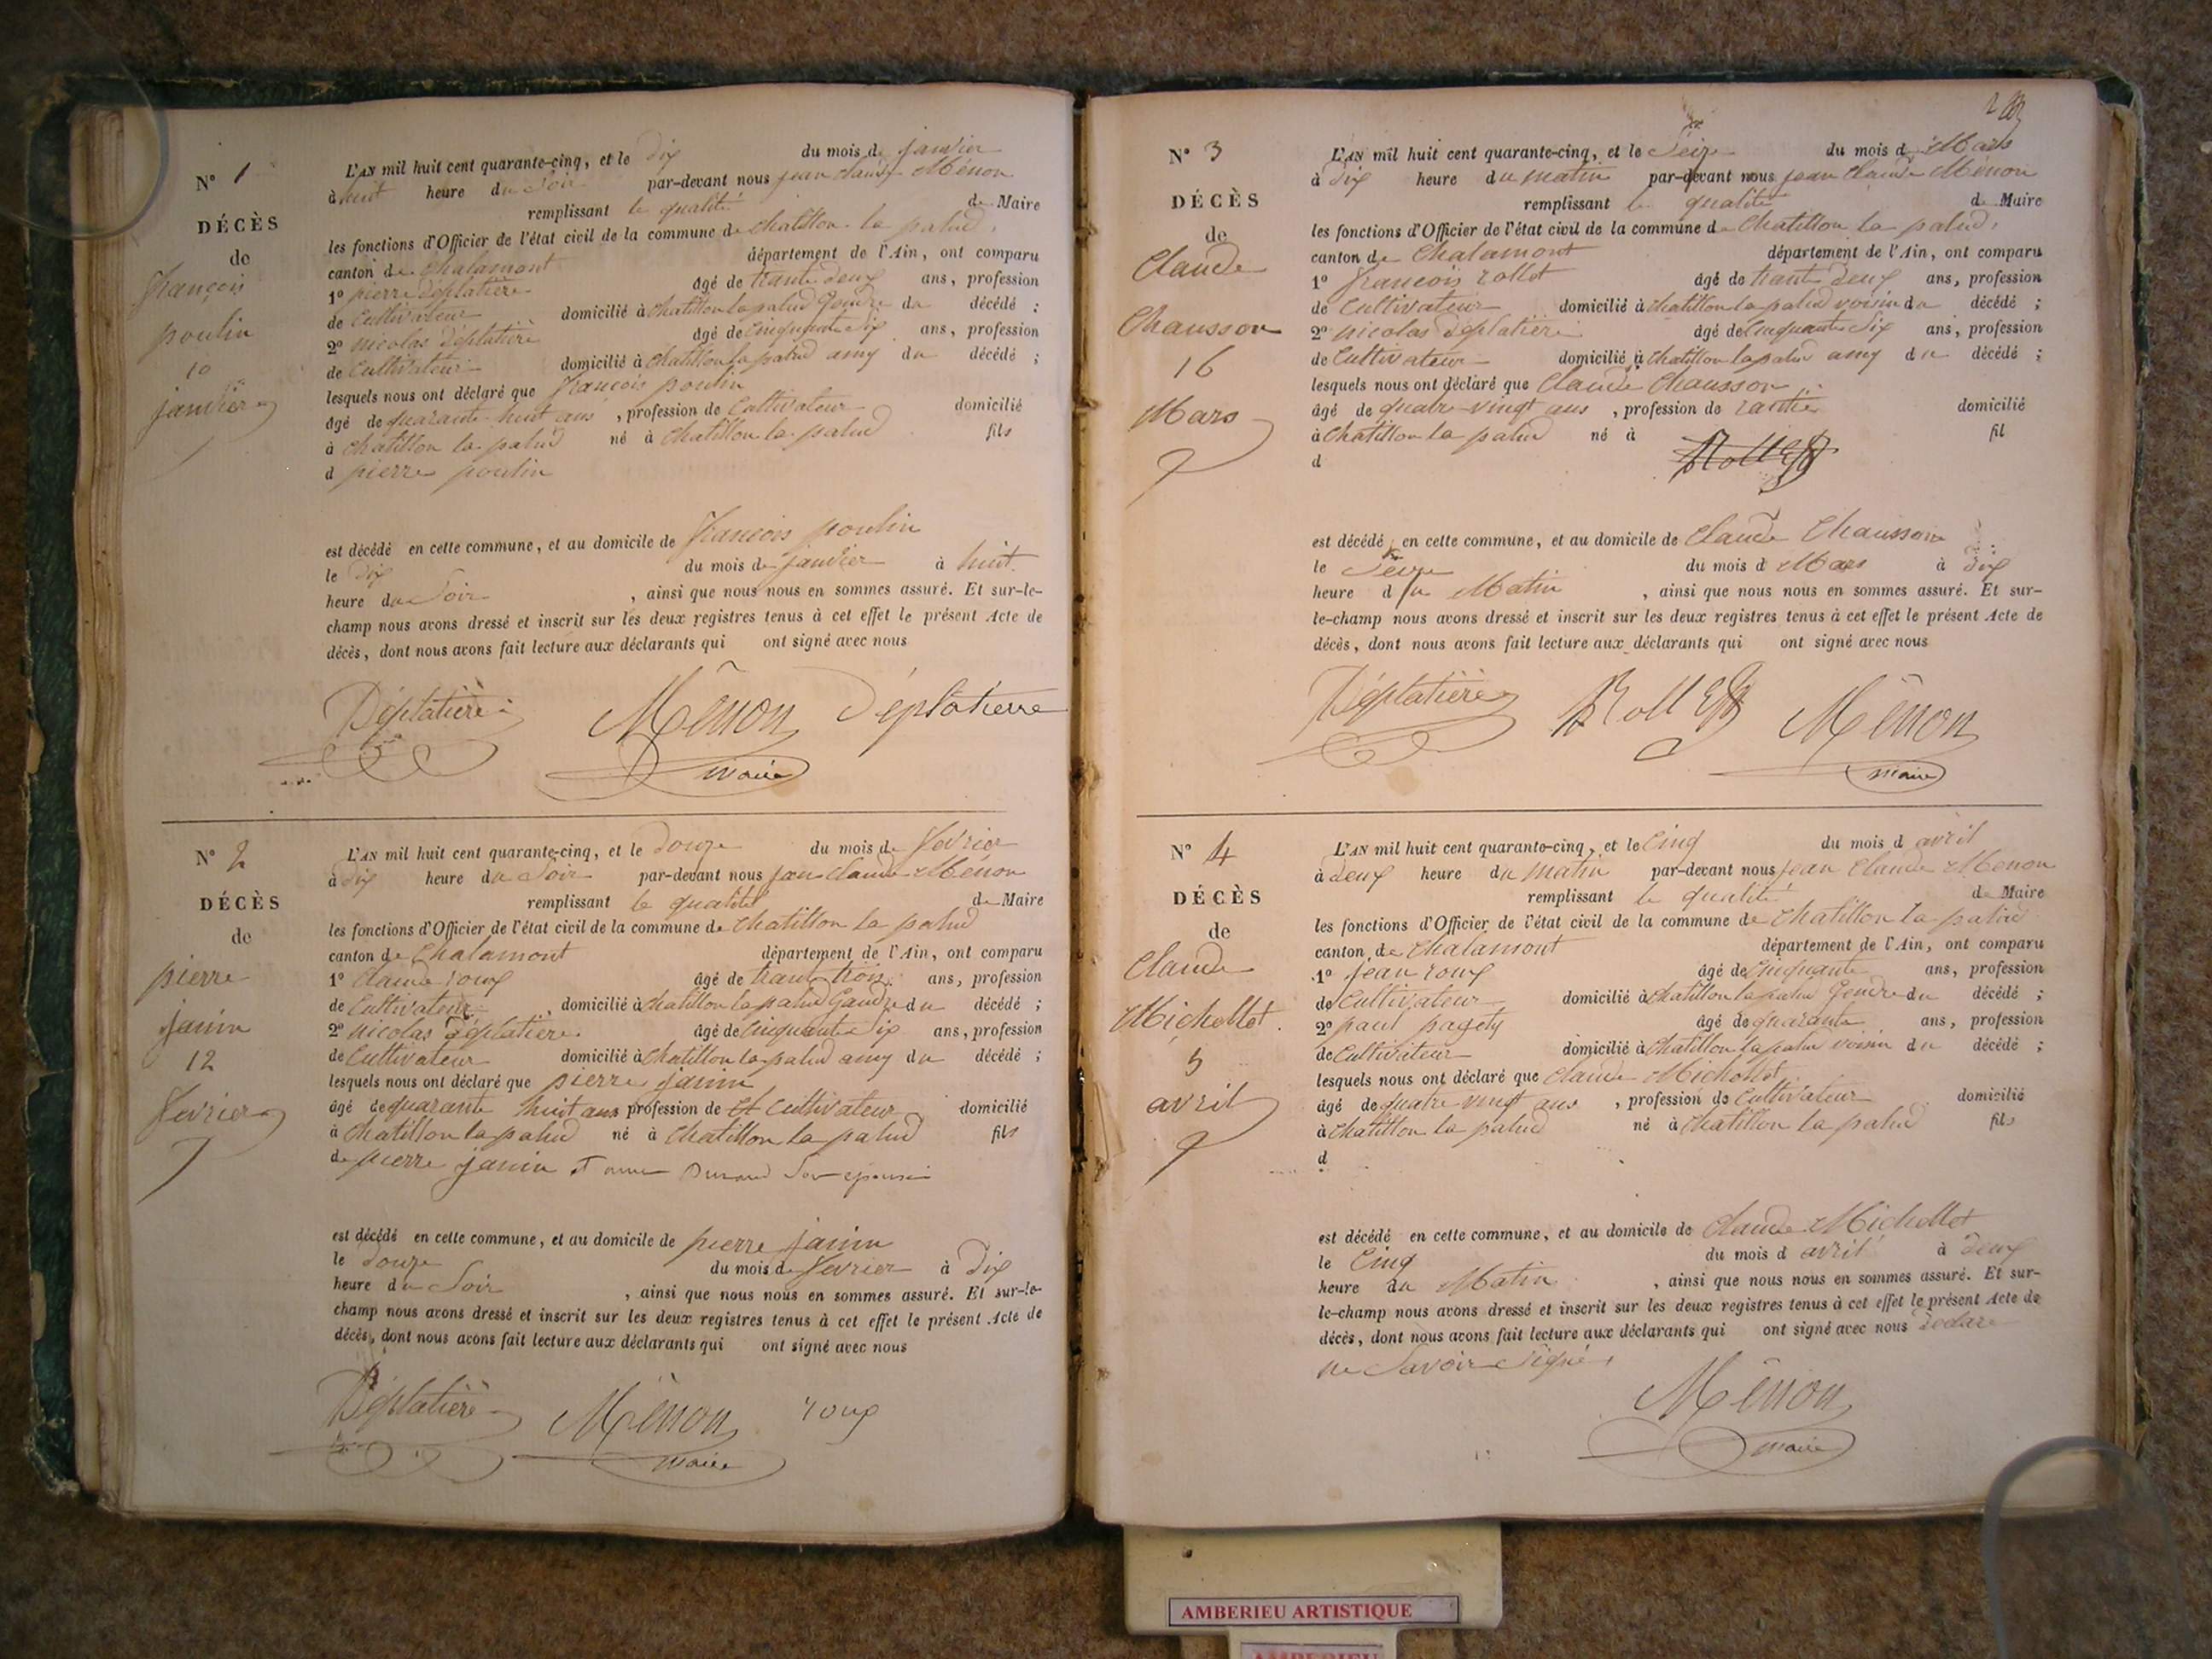 N° 1
DÉCÈS
de
François
poulin
10
janvier
L'AN mil huit cent quarante-cinq, et le dix du mois de janvier
à huit heure du soir par-devant nous jean claude Ménon
remplissant le qualité de Maire
les fonctions d'Officier de l'état civil de la commune de chatillon la palud,
canton de Chalamont département de l'Ain, ont comparu
1° pierre déplatière âgé de trante deux ans, profession
de Cultivateur domicilié à chatillon la palud Gendre du décédé ;
2° nicolas déplatière âgé de Cinquante six ans, profession
de Cultivateur domicilié à chatillon la palud amy du décédé ;
lesquels nous ont déclaré que françois poulin
âgé de quarante huit ans , profession de Cultivateur domicilié
à chatillon la palud né à chatillon la palud fils
d pierre poulin
est décédé en cette commune, et au domicile de François poulin
le dix du mois de janvier à huit
heure du Soir , ainsi que nous nous en sommes assuré. Et sur-le-
champ nous avons dressé et inscrit sur les deux registres tenus à cet effet le présent Acte de
décès, dont nous avons fait lecture aux déclarants qui ont signé avec nous
Déplatière Ménon Déplatierre
maire
N° 2
DÉCÈS
de
pierre
janin
12
fevrier
L'AN mil huit cent quarante-cinq, et le douze du mois de fevrier
à dix heure du Soir par-devant nous jean Claude Ménon
remplissant le qualité de Maire
les fonctions d'Officier de l'état civil de la commune de chatillon la palud
canton de Chalamont département de l'Ain, ont comparu
1° Claude roux âgé de trante trois ans, profession
de Cultivateur domicilié à chatillon la palud Gandre du décédé ;
2° nicolas déplatière âgé de Cinquante six ans, profession
de Cultivateur domicilié à chatillon la palud amy du décédé ;
lesquels nous ont déclaré que pierre janin
âgé de quarante huit ans profession de Cultivateur domicilié
à chatillon la palud né à chatillon la palud fils
de pierre janin et anne Durand son épouse
est décédé en cette commune, et au domicile de pierre janin
le douze du mois de fevrier à Dix
heure du Soir , ainsi que nous nous en sommes assuré. Et sur-le-
champ nous avons dressé et inscrit sur les deux registres tenus à cet effet le présent Acte de
décès, dont nous avons fait lecture aux déclarants qui ont signé avec nous
Déplatière Ménon roux
maire
N° 3
DÉCÈS
de
Claude
Chausson
16
Mars
L'AN mil huit cent quarante-cinq, et le Seize du mois d Mars
à dix heure du matin par-devant nous jean Claude Ménon
remplissant le qualité de Maire
les fonctions d'Officier de l'état civil de la commune de Chatillon la palud,
canton de Chalamont département de l'Ain, ont comparu
1° françois rollet âgé de trante deux ans, profession
de Cultivateur domicilié à chatillon la palud voisin du décédé ;
2° nicolas déplatière âgé de Cinquante six ans, profession
de Cultivateur domicilié à chatillon la palud amy du décédé ;
lesquels nous ont déclaré que Claude Chausson
âgé de quatre-vingt ans , profession de rantier domicilié
à Chatillon la palud né à fil
d
est décédé en cette commune, et au domicile de Claude Chausson
le Seize du mois d Mars à Dix
heure du Matin , ainsi que nous nous en sommes assuré. Et sur-
le-champ nous avons dressé et inscrit sur les deux registres tenus à cet effet le présent Acte de
décès, dont nous avons fait lecture aux déclarants qui ont signé avec nous
Déplatière Rollet Ménon
maire
N° 4
DÉCÈS
de
Claude
Michollet
5
avril
L'AN mil huit cent quarante-cinq, et le Cinq du mois d avril
à deux heure du matin par-devant nous jean Claude Ménon
remplissant le qualité de Maire
les fonctions d'Officier de l'état civil de la commune de Chatillon la palud
canton de Chalamont département de l'Ain, ont comparu
1° jean roux âgé de Cinquante ans, profession
de Cultivateur domicilié à chatillon la palud Gendre du décédé ;
2° paul pagety âgé de quarante ans, profession
de Cultivateur domicilié à Chatillon la palud voisin du décédé ;
lesquels nous ont déclaré que Claude Michollet
âgé de quatre vingt ans , profession de Cultivateur domicilié
à chatillon la palud né à chatillon la palud fils
d
est décédé en cette commune, et au domicile de Claude Michollet
le Cinq du mois d avril à Deux
heure du Matin , ainsi que nous nous en sommes assuré. Et sur-
le-champ nous avons dressé et inscrit sur les deux registres tenus à cet effet le présent Acte de
décès, dont nous avons fait lecture aux déclarants qui ont signé avec nous déclare
ne Savoir Signé
Ménon
maire
AMBERIEU ARTISTIQUE